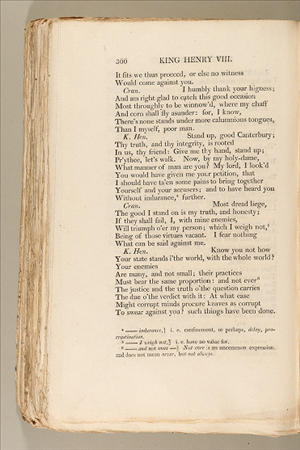 300 KING HENRY VIII.
It fits we thus proceed, or else no witness
Would come against you.
Cran. I humbly thank your higness;
And am right glad to catch this good occasion
Most throughly to be winnow'd, where my chaff
And corn shall fly asunder: for, I know,
There's none stands under more calumnious tongues,
Than I myself, poor man.
K. Hen. Stand up, good Canterbury;
Thy truth, and thy integrity, is rooted
In us, thy friend: Give me thy hand, stand up;
Pr'ythee, let's walk. Now, by my holy-dame,
What manner of man are you? My lord, I look'd
You would have given me your petition, that
I should have ta'en some pains to bring together
Yourself and your accusers; and to have heard you
Without indurance, further.
Cran. Most dread liege,
The good I stand on is my truth, and honesty;
If they shall fail, I, with mine enemies,
Will triumph o'er my person; which I weigh not,
Being of those virtues vacant. I fear nothing
What can be said against me.
K. Hen. Know you not how
Your state stands i'the world, with the whole world?
Your enemies
Are many, and not small; their practices
Must bear the same proportion: and not ever
The justice and the truth o'the question carries
The due o'the verdict with it: At what ease
Might corrupt minds procure knaves as corrupt
To swear against you? such things have been done.
—— indurance,] i. e. confinement, or perhaps, delay, pro-
crastination.
—— I weigh not,] i. e. have no value for.
—— and not ever —] Not ever is an uncommon expression,
and does not mean never, but not always.